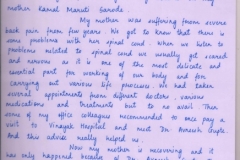 mother Kamal Maruti Garode.
My mother was suffering from severe
back pain from few years. We got to know that there is
some problems with her spinal cord. When we listen to
problems related to spinal cord we usually get scared
and nervous as it is one of the most delicate and
essential part for working of our body and for
carrying out various life processes. We had taken
several appointments from different doctors, various
medications and treatments but to no avail. Then
some of my office colleagues recommended to once pay a
visit to Vinayak Hospital and meet Dr. Avneesh Gupte.
And this advice really helped us.
Now my mother is recovering and it
has only happened because of Dr. Avneesh